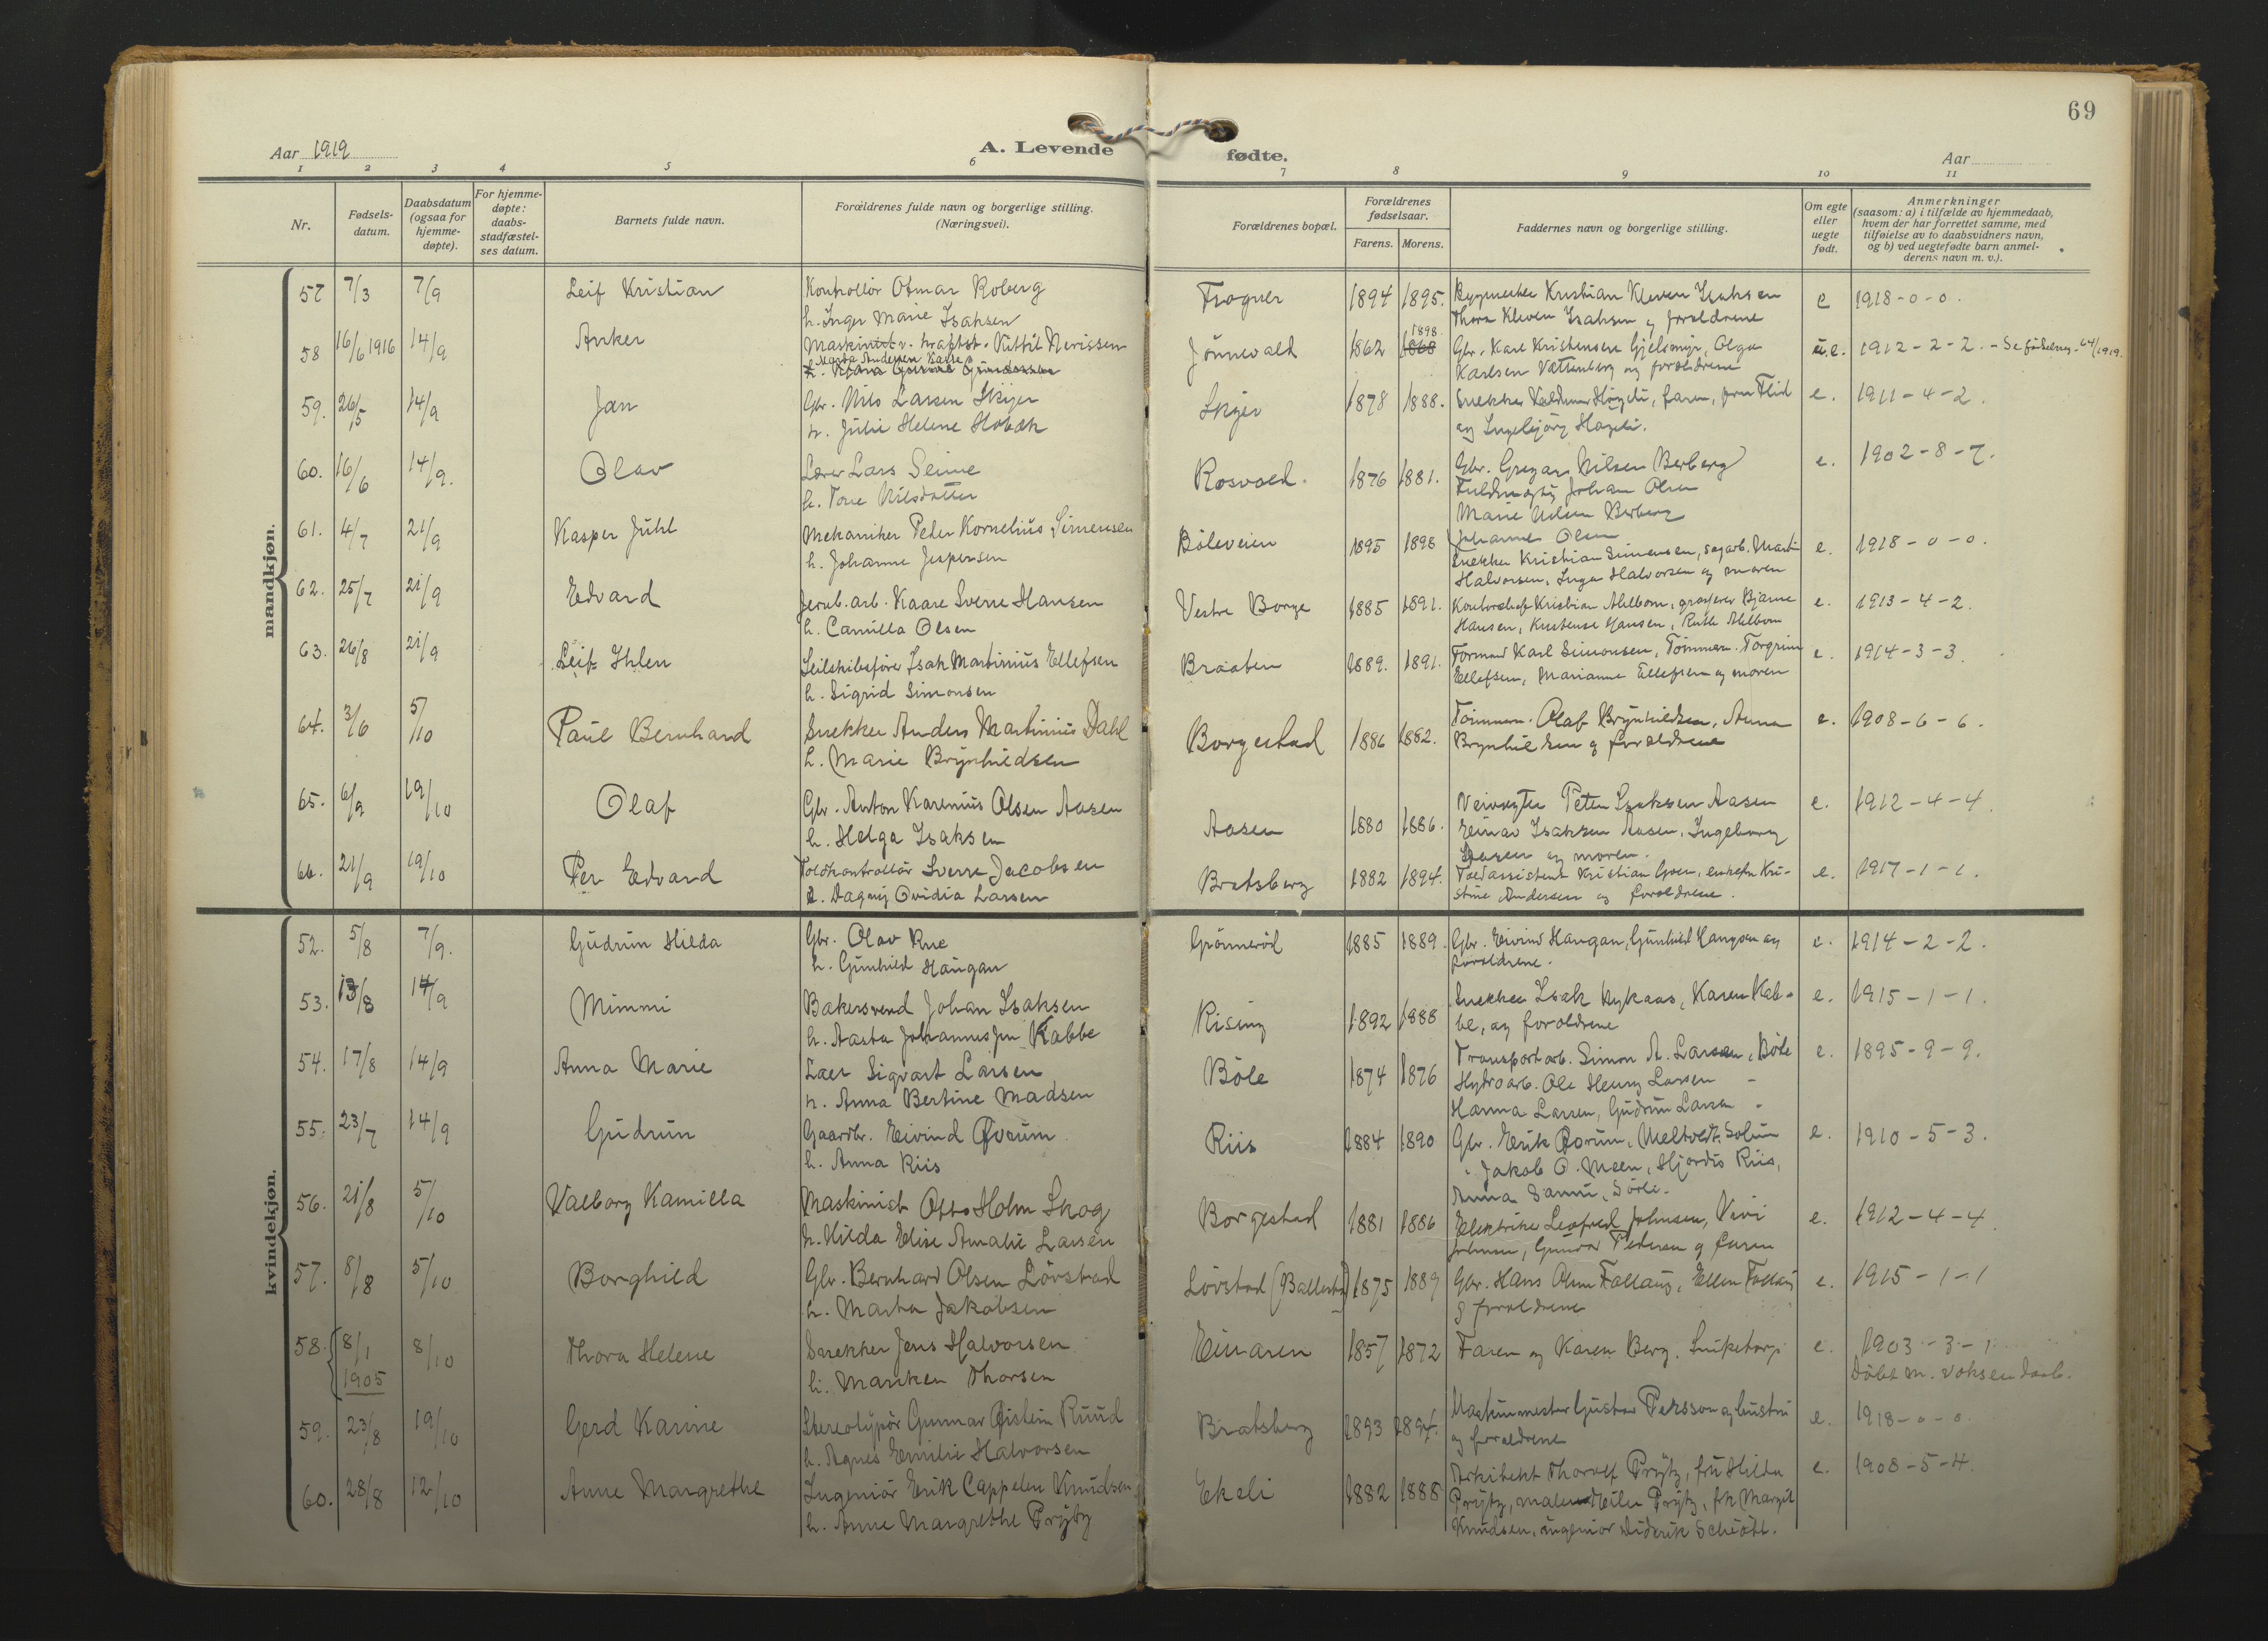 69
Aar 1919
A. Levende
fødte.
Aar
1 2 3 4 5 6 7 8 9 10 11
Nr.
Fødsels-
datum.
Daabsdatum
(ogsaa for
hjemme-
døpte).
For hjemme-
døpte:
daabs-
stadfæstel-
ses datum.
Barnets fulde navn.
Forældrenes fulde navn og borgerlige stilling.
(Næringsvei).
Forældrenes bopæl.
Forældrenes
fødselsaar.
Farens. Morens.
Faddernes navn og borgerlige stilling.
Om egte
eller
uegte
født.
Anmerkninger
(saasom: a) i tilfælde av hjemmedaab,
hvem der har forrettet samme, med
tilføielse av to daabsvidners navn,
og b) ved uegtefødte barn anmel-
derens navn m. v.).
mandkjøn.
57 7/3 7/9 Leif Kristian Kontrollør Otmar Roberg Frogner 1894 1895. Kristian Kleven Isaksen e 1918-0-0.
h. Inger Marie Isaksen Thora Kleven Isaksen og forældrene
58 16/6 1916 14/9 Anker Nerissen Jønnevald 1862 1898 1868 Gbr. Karl Kristensen Gjelsmyr, Olga u.e. 1912-2-2. - Se fødselsreg. 64/1919.
Marta Andersen
Karlsen og forældrene
59. 26/5 14/9 Jan Gbr. Nils Larsen Skyer Skyer 1878 1888. Snekker faren, e. 1911-4-2.
h. Julie Helene og Ingebjørg
60. 16/6 14/9. Olav Lærer Lars Seime Rosvold. 1876 1881. Gbr. Gregar Nilsen Berberg e. 1902-8-7.
h. Tone Nilsdatter Johan Olsen
Marie Nilsen Berberg
Johanne Olsen
61. 4/7 21/9 Kasper Juhl Mekaniker Peder Kornelius Simensen Bøleveien 1895 1898 Snekker Kristian Simensen, sagarb. Martin e. 1918-0-0.
h. Johanne Jespersen Halvorsen, Inga Halvorsen og moren
62. 25/7 21/9 Edvard Jernb. arb. Kaare Sverre Hansen Vestre Borge 1885 1891. Kristian Ahlbom, Bjarne e. 1913-4-2.
h. Camilla Olsen Hansen, Hansen, Ruth Ahlbom
63. 26/8 21/9 Leif Ihlen Seilskibsfører Isak Martinius Ellefsen Braaten 1889. 1891. Formand Karl Simonsen, Tømmerm. Torgrim e. 1914-3-3.
h. Sigrid Simonsen Ellefsen, Marianne Ellefsen og moren
64. 3/6 5/10 Paul Bernhard Snekker Anders Martinius Dahl Borgestad 1886 1882. Tømmerm. Olaf Brynhildsen, Anna e. 1908-6-6.
h. Marie Brynhildsen Brynhildsen og forældrene
65. 6/9 19/10 Olaf Gbr. Anton Karenius Olsen Aasen Aasen 1880 1886. Veivogter Peter Isaksen Aasen e. 1912-4-4.
h. Helga Isaksen Einar Isaksen Aasen, Ingeborg
Aasen og moren.
66. 21/9 19/10 Per Edvard Toldkontrollør Sverre Jacobsen Bratsberg 1882 1894. Toldassistent Kristian Kri- e. 1917-1-1.
h. Dagny Ovidia Larsen stine Andersen og forældrene.
kvindekjøn.
52. 5/8 7/9. Gudrun Hilda Gbr. Olav Rue Grønnerød 1885 1889. Gbr. Eivind Haugan, Gunhild Haugan og e. 1914-2-2.
h. Gunhild Haugan forældrene.
53. 13/8 14/9 Mimmi Bakersvend Johan Isaksen Rising 1892 1888 Snekker Isak Nykaas, Karen Kab- e. 1915-1-1.
h. Aasta Johannesen Kabbe be, og forældrene
54. 17/8 14/9 Anna Marie Sigvart Larsen Bøle 1874 1876 Transportarb. Simon A. Larsen, Bøle e. 1895-9-9.
h. Anna Bertine Madsen Hydroarb. Ole Henry Larsen -
Hanna Larsen, Gudrun Larsen -
55. 23/7 14/9 Gudrun Gaardbr. Eivind Qvarum Riis 1884 1890 Gbr. Erik Meltvedt, Solum e. 1910-5-3.
h. Anna Riis " Jakob O. Meen, Hjørdis Riis,
Anna
56. 21/8 5/10 Valborg Kamilla Maskinist Otto Holm Skog Borgestad 1881 1886 Elektriker Johnsen, Vivi e. 1912-4-4.
h. Hilda Elise Amalie Larsen Johnsen, Gunvor Pedersen og faren
57. 8/8 5/10 Borghild Gbr. Bernhard Olsen Løvstad Løvstad (Ballestad) 1875 1889 Gbr. Hans Olsen Follaug, Ellen Follaug e. 1915-1-1
h. Marta Jakobsen og forældrene
58. 8/1 1905 8/10 Thora Helene Snekker Jens Halvorsen Einaren 1857 1872 Faren og Karen Berg. Sniketorp e. 1903-3-1
h. Marken Thorsen Døbt m. voksen daab.
59. 23/8 19/10 Gerd Karine Stereotypør Gunnar Øistein Ruud Bratsberg 1893 1894. Maskinmester Gustav Persson og hustru e. 1918-0-0.
h. Agnes Emilie Halvorsen og forældrene
60. 28/8 12/10 Anne Margrethe Ingeniør Erik Cappelen Knudsen Ekeli 1882 1888 Arkitekt Thorolf Prytz, fru Hilda e. 1908-5-4.
h. Anne Margrethe Prytz Prytz, maler Prytz, frk Margit
Knudsen, ingeniør Diderik Schiøtt.